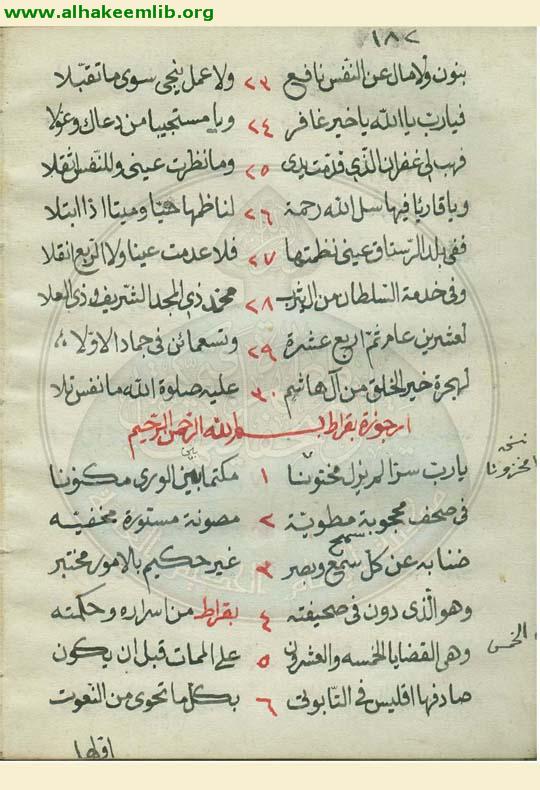 www.alhakeemlib.org
١٨٢
بنون ولا مال عن النفس نافع ٢٣ ولا عمل ينجى سوى ما تقبلا
فيارب يا الله يا خير غافر ٢٤ ويا مستجيبا من دعاك وعولا
فهب لى غفران الذى قدمت يدى ٢٥ وما نظرت عينى وللنفس اثقلا
ويا قاريا فيها سل الله رحمة ٢٦ لناظمها حيا وميتا اذا ابتلا
ففى بلد الرستاق عينى نظمتها ٢٧ فلا عدمت عينا ولا الربع انقلا
وفى خدمة السلطان من ٢٨ محمد ذى المجد الشريف وذى العلا
لعشرين عام ثم اربع عشرة ٢٩ وتسعمائن فى جماد الاولا
لهجرة خير الخلق من آل هاشم ٣٠ عليه صلوة الله ما نفس تلا
ارجوزة بقراط بسم الله الرحمن الرحيم
يا رب سر لم يزل مختونا ١ مكتما بين الورى مكنونا
نسخه مخزونا
فى صحف محجوبة مطوية ٢ مصونة مستورة مخفيه
ضنا به عن كل سمع وبصر ٣ غير حكيم بالامور مختبر
سمع
وهو الذى دون فى صحيفته ٤ بقراط من اسراره وحكمته
وهى القضايا الخمسه والعشرون ٥ على الممات قبل ان يكون
الخمس
صادفها اقليس فى التابوت ٦ بكل ما تحوى من النعوت
اقلها